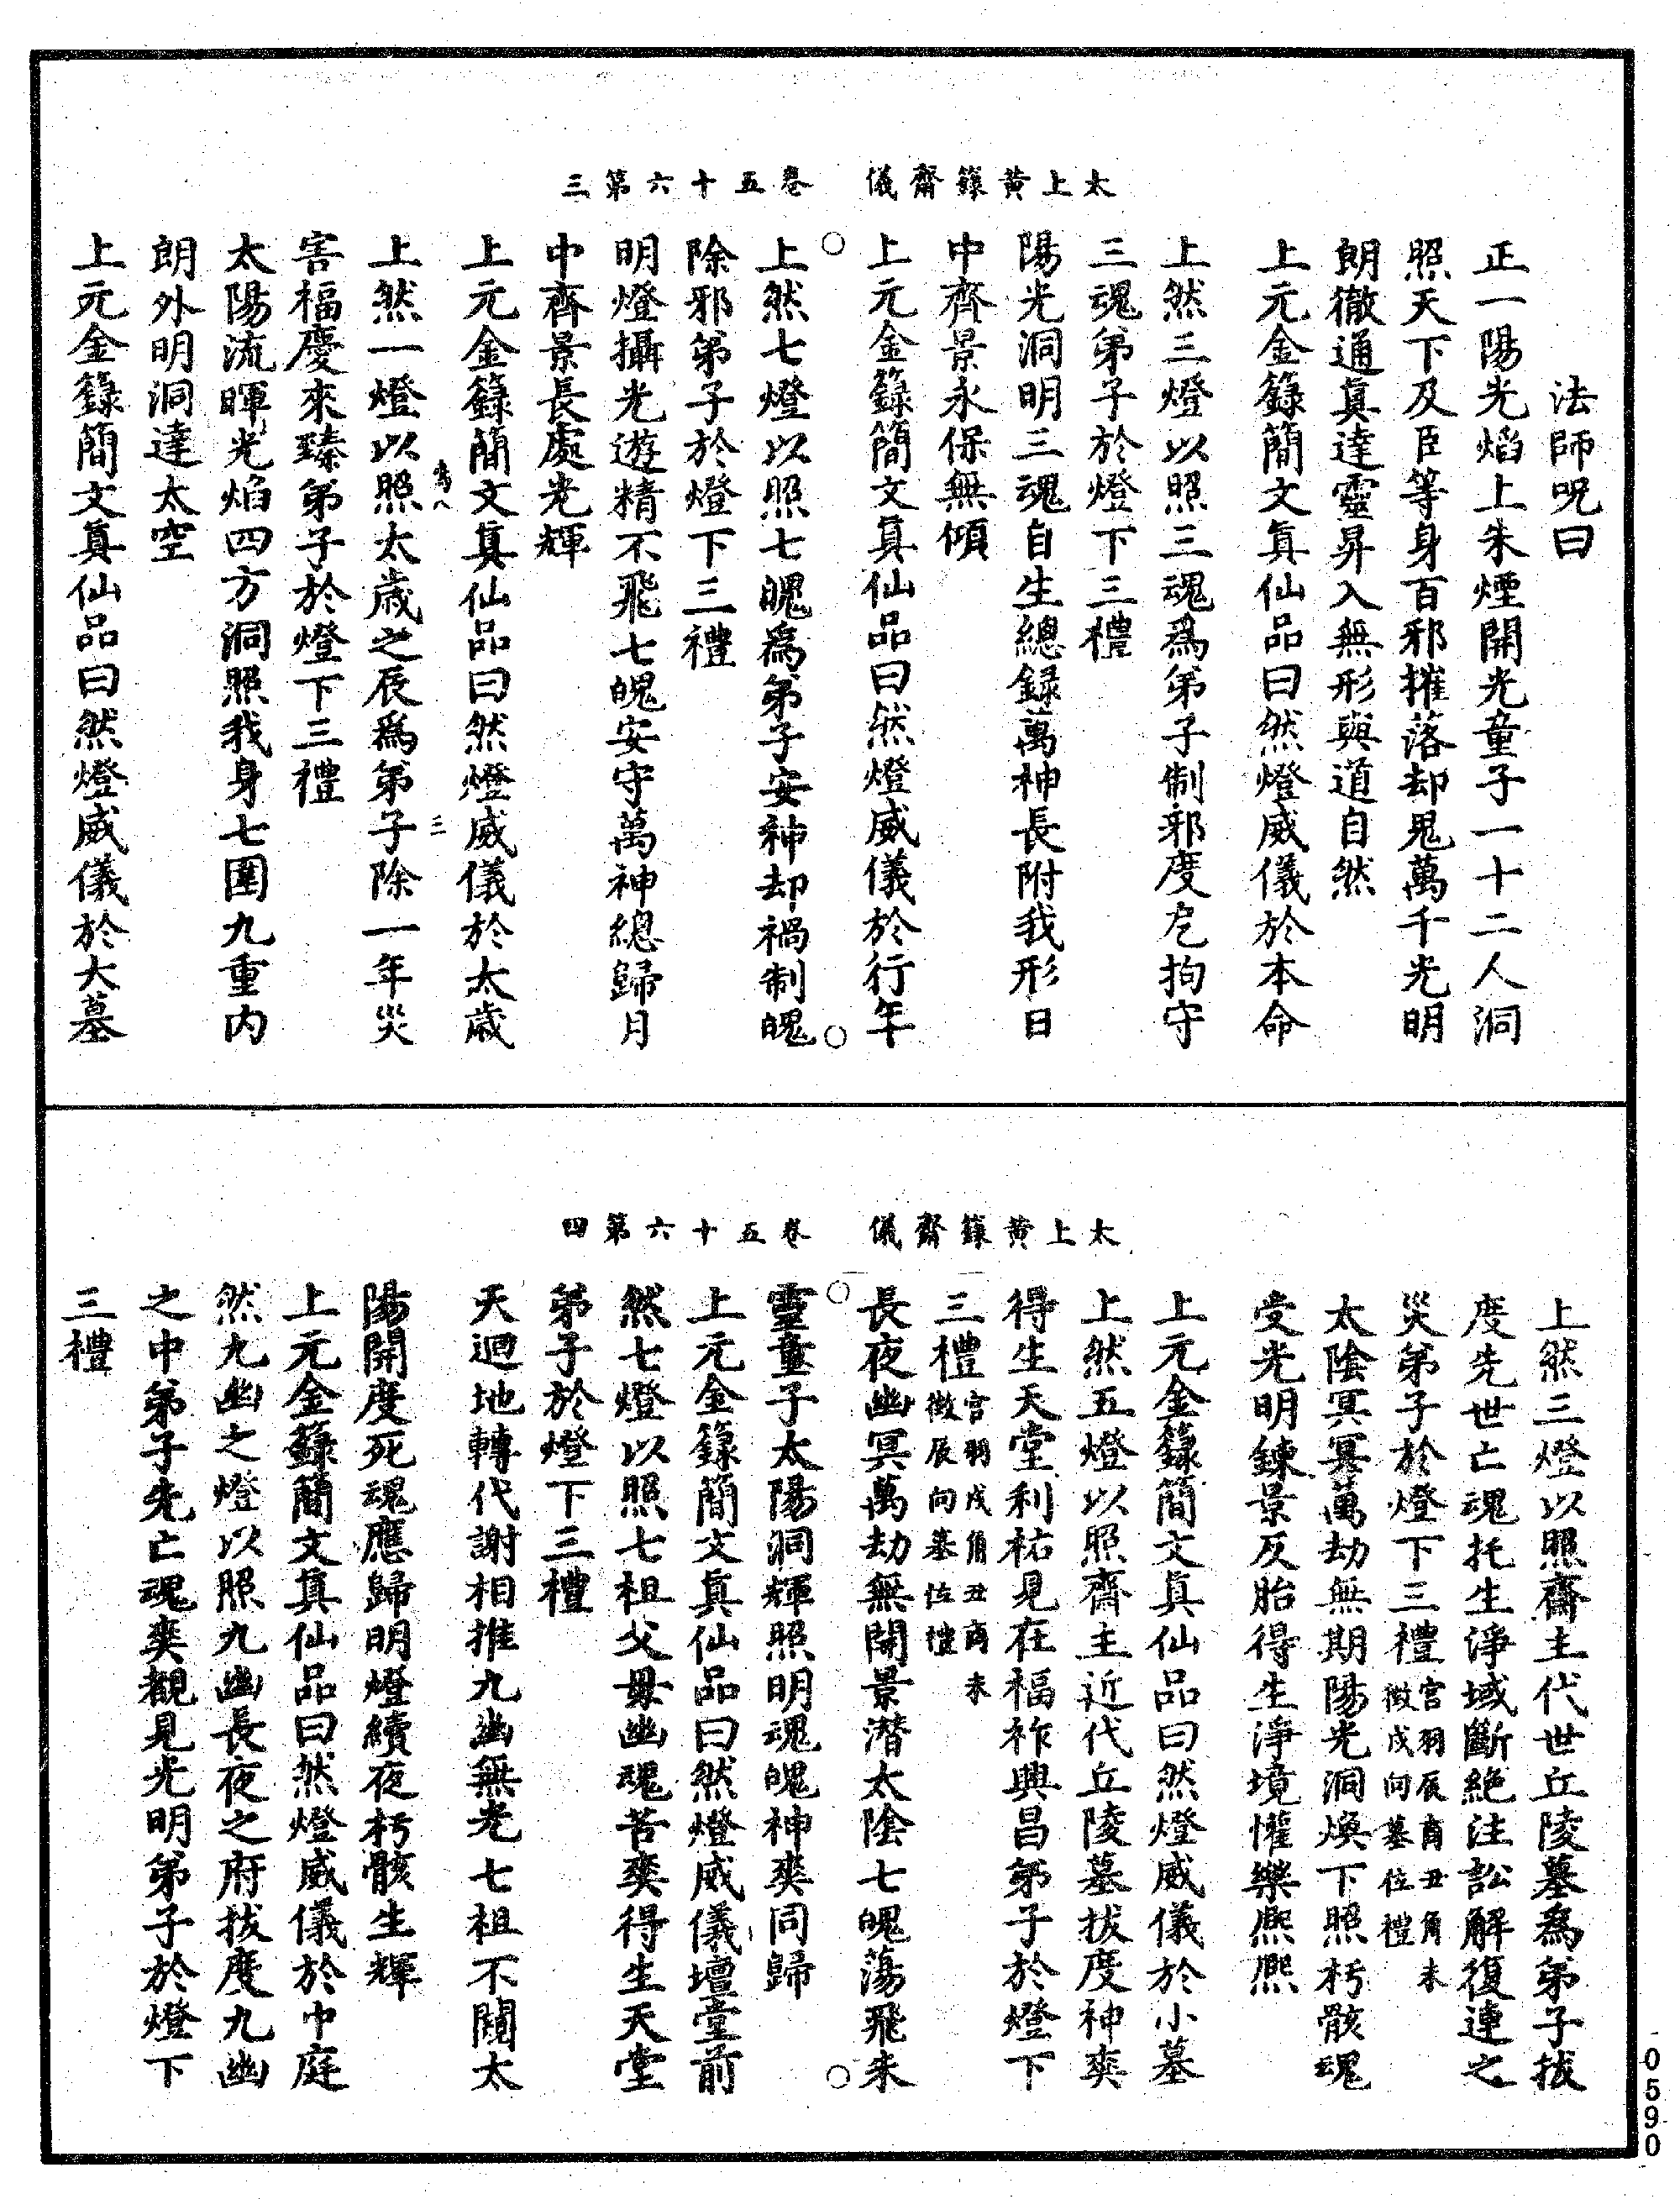 太上黃籙齋儀　卷五十六第三
法師呪曰
正一陽光焰上朱煙開光童子一十二人洞
照天下及臣等身百邪摧落却鬼萬千光明
朗徹通真達靈昇入無形與道自然
上元金籙簡文真仙品曰然燈威儀於本命
上然三燈以照三魂爲弟子制邪度厄拘守
三魂弟子於燈下三禮
陽光洞明三魂自生總録萬神長附我形日
中齊景永保無傾
上元金籙簡文真仙品曰然燈威儀於行年
上然七燈以照七魄爲弟子安神却禍制魄
除邪弟子於燈下三禮
明燈攝光遊精不飛七魄安守萬神總歸月
中齊景長處光輝
上元金籙簡文真仙品曰然燈威儀於太歲
三
上然一燈以照太歲之辰爲弟子除一年災
害福慶來臻弟子於燈下三禮
太陽流暉光焰四方洞照我身七圍九重内
朗外明洞達太空
上元金籙簡文真仙品曰然燈威儀於大墓
太上黃籙齋儀　卷五十六第四
上然三燈以照齋主代世丘陵墓爲弟子拔
度先世亡魂托生淨域斷絶注訟解復連之
災弟子於燈下三禮宮羽辰商丑角未徵戌向墓位禮
太陰冥冥萬劫無期陽光洞煥下照朽骸魂
受光明鍊景反胎得生淨境懽樂熈熈
上元金籙簡文真仙品曰然燈威儀於小墓
上然五燈以照齋主近代丘陵墓拔度神爽
得生天堂利祐見在福祚興昌弟子於燈下
三禮宮羽戌角丑商未徵辰向墓位禮
長夜幽冥萬劫無開景潛太陰七魄蕩飛朱
靈童子太陽洞輝照明魂魄神爽同歸
上元金籙簡文真仙品曰然燈威儀壇堂前
然七燈以照七祖父毋幽魂苦爽得生天堂
弟子於燈下三禮
天迴地轉代謝相推九幽無光七祖不闚太
陽開度死魂應歸明燈續夜朽骸生輝
上元金籙簡文真仙品曰然燈威儀於中庭
然九幽之燈以照九幽長夜之府拔度九幽
之中弟子先亡魂爽覩見光明弟子於燈下
三禮
0590